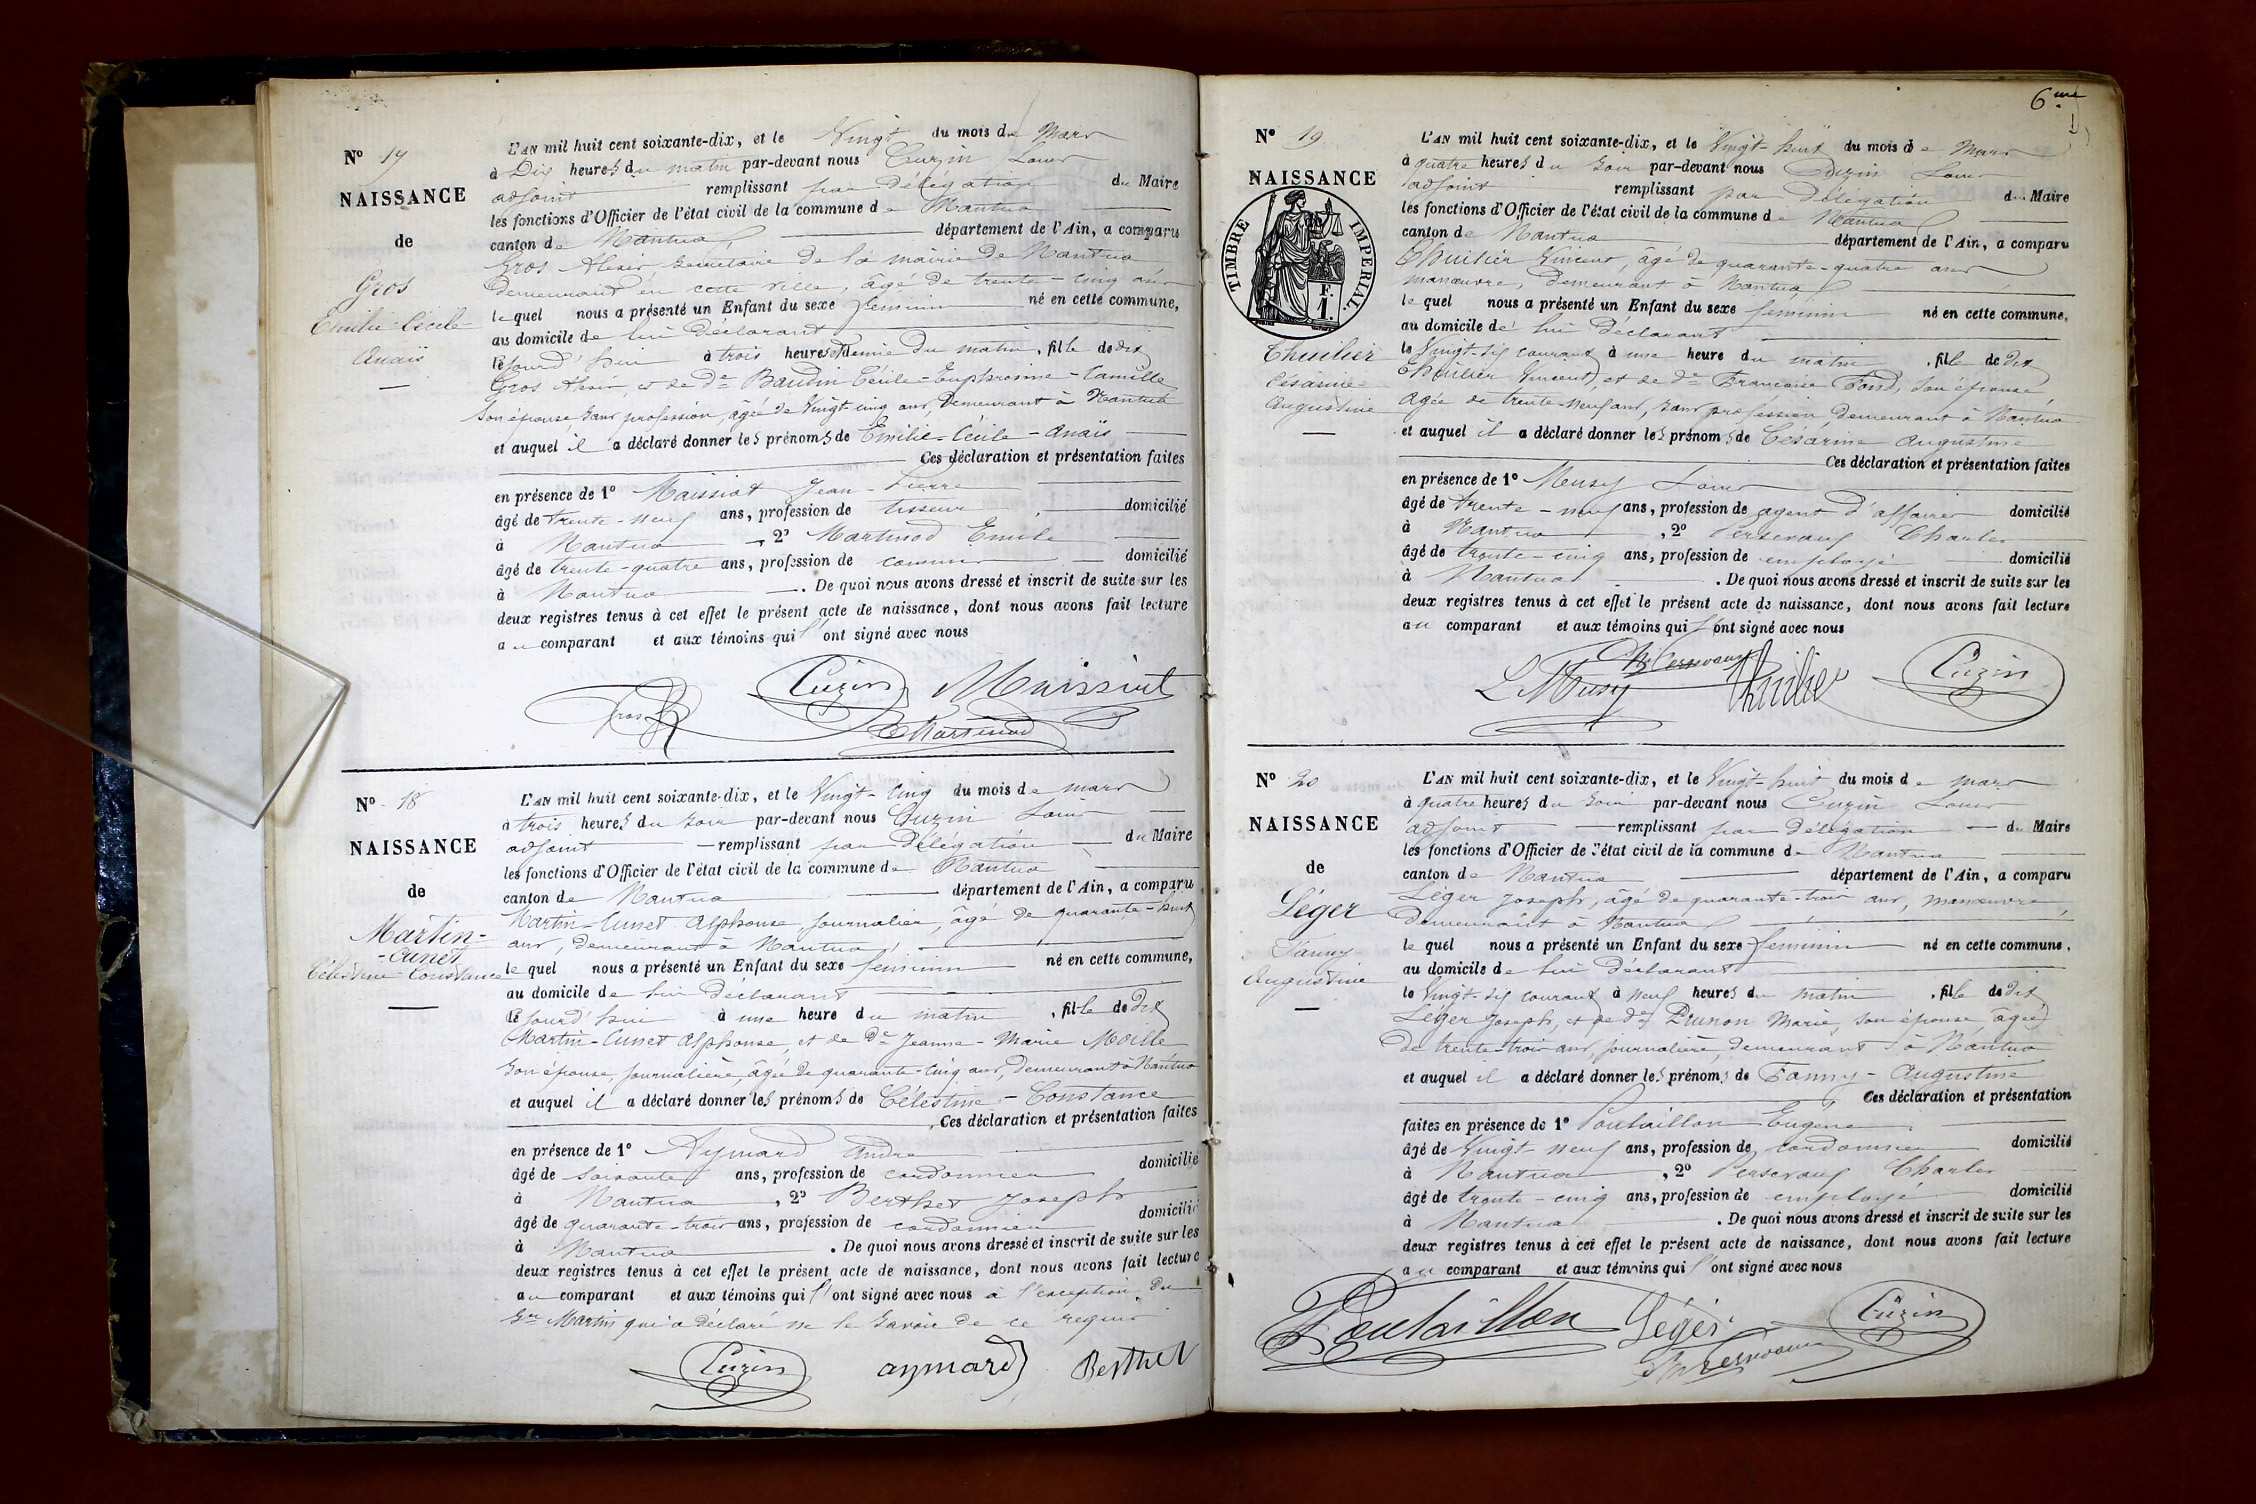 N° 17
NAISSANCE
de
Gros
Emilie-Cécile-
Anaïs
L'AN mil huit cent soixante-dix, et le Vingt du mois de Mars
à Dix heures du matin par-devant nous Cuzin Louis
adjoint remplissant par délégation du Maire
les fonctions d'Officier de l'état civil de la commune de Nantua
canton de Nantua, département de l'Ain, a comparu
Gros Alexis secrétaire de la mairie de Nantua
demeurant en cette ville, âgé de trente-cinq ans
lequel nous a présenté un Enfant du sexe féminin né en cette commune,
au domicile de lui déclarant
le jourd'hui à trois heures et demie du matin, fille de dit
Gros Alexis, et de De Baudin Cécile-Euphrosine-Camille
son épouse, sans profession, âgée de Vingt-cinq ans, demeurant à Nantua
et auquel il a déclaré donner les prénoms de Emilie-Cécile-Anaïs
Ces déclaration et présentation faites
en présence de 1° Maissiat Jean-Pierre
âgé de trente-neuf ans, profession de tisseur, domicilié
à Nantua, 2° Martinod Emile
âgé de trente-quatre ans, profession de commis domicilié
à Nantua. De quoi nous avons dressé et inscrit de suite sur les
deux registres tenus à cet effet le présent acte de naissance, dont nous avons fait lecture
au comparant et aux témoins qui l'ont signé avec nous
Gros Cuzin Maissiat
E Martinod
N° 18
NAISSANCE
de
Martin-
-Cunet
Célestine-Constance
L'AN mil huit cent soixante-dix, et le Vingt-cinq du mois de mars
à trois heures du soir par-devant nous Cuzin Louis
adjoint remplissant par délégation du Maire
les fonctions d'Officier de l'état civil de la commune de Nantua
canton de Nantua département de l'Ain, a comparu
Martin-Cunet Alphonse journalier, âgé de quarante-huit
ans, demeurant à Nantua,
lequel nous a présenté un Enfant du sexe féminin né en cette commune,
au domicile de lui déclarant
le jourd'hui à une heure du matin, fille de dit
Martin-Cunet Alphonse, et de De Jeanne-Marie Moille
son épouse, journalière, âgée de quarante-cinq ans, demeurant à Nantua
et auquel il a déclaré donner les prénoms de Célestine-Constance
Ces déclaration et présentation faites
en présence de 1° Aymard André
âgé de soixante ans, profession de cordonnier domicilié
à Nantua, 2° Berthet Joseph
âgé de quarante-trois ans, profession de cordonnier domicilié
à Nantua. De quoi nous avons dressé et inscrit de suite sur les
deux registres tenus à cet effet le présent acte de naissance, dont nous avons fait lecture
au comparant et aux témoins qui l'ont signé avec nous à l'exception du
Sr Martin qui a déclaré ne le savoir de ce requis
Cuzin aymard Berthet
6me
N° 19
NAISSANCE
TIMBRE IMPERIAL
F.
1.
Thuilier
Césarine-
Augustine
L'AN mil huit cent soixante-dix, et le Vingt-huit du mois de Mars
à quatre heures du soir par-devant nous Cuzin Louis
adjoint remplissant par délégation du Maire
les fonctions d'Officier de l'état civil de la commune de Nantua
canton de Nantua département de l'Ain, a comparu
Thuilier Vincent, âgé de quarante-quatre ans
manœuvre, demeurant à Nantua
lequel nous a présenté un Enfant du sexe féminin né en cette commune,
au domicile de lui déclarant
le Vingt-six courant à une heure du matin, fille de dit
Thuilier Vincent, et de De Françoise Fond, son épouse,
âgée de trente-neuf ans, sans profession, demeurant à Nantua
et auquel il a déclaré donner les prénoms de Césarine Augustine
Ces déclaration et présentation faites
en présence de 1° Musy Louis
âgé de trente-neuf ans, profession de agent d'affaires domicilié
à Nantua, 2° Persevaux Charles
âgé de trente-cinq ans, profession de employé domicilié
à Nantua. De quoi nous avons dressé et inscrit de suite sur les
deux registres tenus à cet effet le présent acte de naissance, dont nous avons fait lecture
au comparant et aux témoins qui l'ont signé avec nous
L Musy Thuilier Cuzin
N° 20
NAISSANCE
de
Léger
Fanny-
Augustine
L'AN mil huit cent soixante-dix, et le Vingt-huit du mois de mars
à quatre heures du soir par-devant nous Cuzin Louis
adjoint remplissant par délégation du Maire
les fonctions d'Officier de l'état civil de la commune de Nantua
canton de Nantua département de l'Ain, a comparu
Léger Joseph, âgé de quarante-trois ans, manœuvre,
demeurant à Nantua
lequel nous a présenté un Enfant du sexe féminin né en cette commune,
au domicile de lui déclarant
le Vingt-six courant à neuf heures du matin, fille de dit
Léger Joseph, et de De Prunon Marie, son épouse âgée
de trente-trois ans, journalière, demeurant à Nantua
et auquel il a déclaré donner les prénoms de Fanny-Augustine
Ces déclaration et présentation
faites en présence de 1° Poulaillon Eugène
âgé de Vingt-neuf ans, profession de cordonnier domicilié
à Nantua, 2° Persevaux Charles
âgé de trente-cinq ans, profession de employé domicilié
à Nantua. De quoi nous avons dressé et inscrit de suite sur les
deux registres tenus à cet effet le présent acte de naissance, dont nous avons fait lecture
au comparant et aux témoins qui l'ont signé avec nous
Poulaillon Léger Cuzin